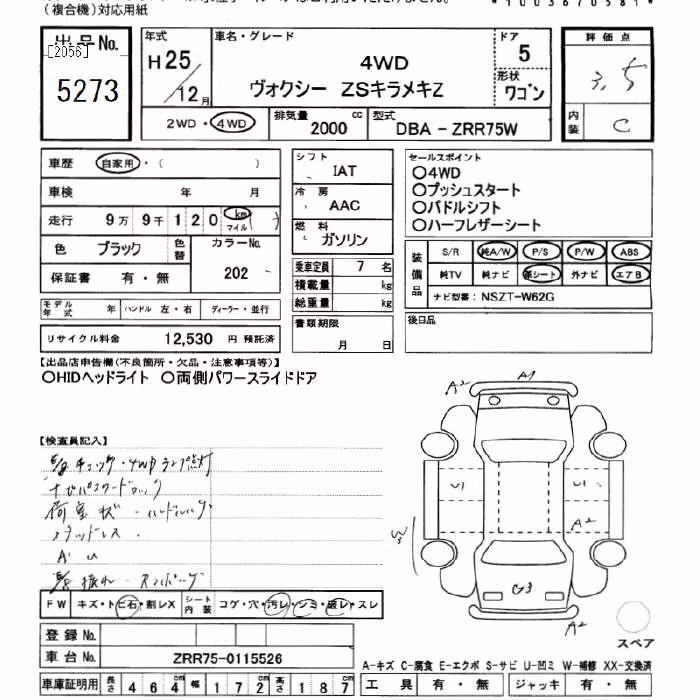 (複合機)対応用紙
出品No.
[2056]
5273
年式
H25/12月
車名・グレード
4WD
ヴォクシー ZSキラメキZ
ドア
5
形状
ワゴン
評価点
3.5
内装
C
2WD・4WD
排気量
2000 cc
型式
DBA - ZRR75W
車歴 自家用・( )
車検 年 月
走行 9万9千120 km マイル
色 ブラック 色替
カラーNo.
202
保証書 有・無
モデル年式 年 ハンドル 左・右 ディーラー・並行
リサイクル料金 12,530 円 預託済
シフト
IAT
冷房
AAC
燃料
ガソリン
乗車定員 7 名
積載量 kg
総重量 kg
書類期限
月 日
セールスポイント
〇4WD
〇プッシュスタート
〇パドルシフト
〇ハーフレザーシート
装備品
S/R 純A/W P/S P/W ABS
純TV 純ナビ 革シート 外ナビ エアB
ナビ型番: NSZT-W62G
後日品
【出品店申告欄(不良箇所・欠品・注意事項等)】
〇HIDヘッドライト 〇両側パワースライドドア
【検査員記入】
A2
A1
U1
U1
A2
W3
G3
A2
FW キズ・トビ石・割レX シート内装 コゲ・穴・汚レ・シミ・破レ・スレ
登録No.
車台No. ZRR75-0115526
車庫証明用 長さ 464 cm 幅 172 cm 高さ 187 cm
スペア
A-キズ C-腐食 E-エクボ S-サビ U-凹ミ W-補修 XX-交換済
工具 有・無 ジャッキ 有・無